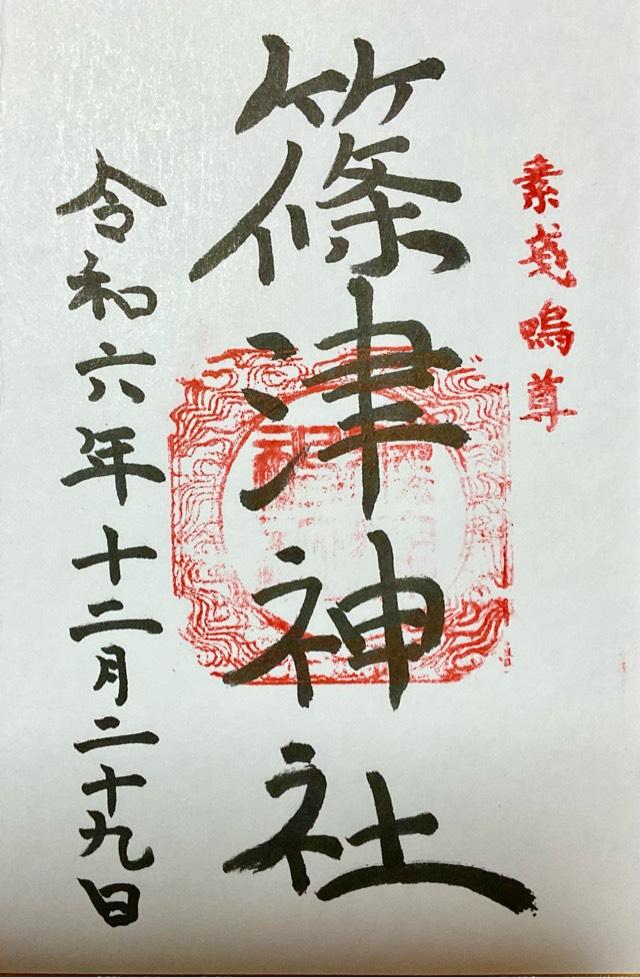 素戔嗚尊
篠津神社
令和六年十二月二十九日